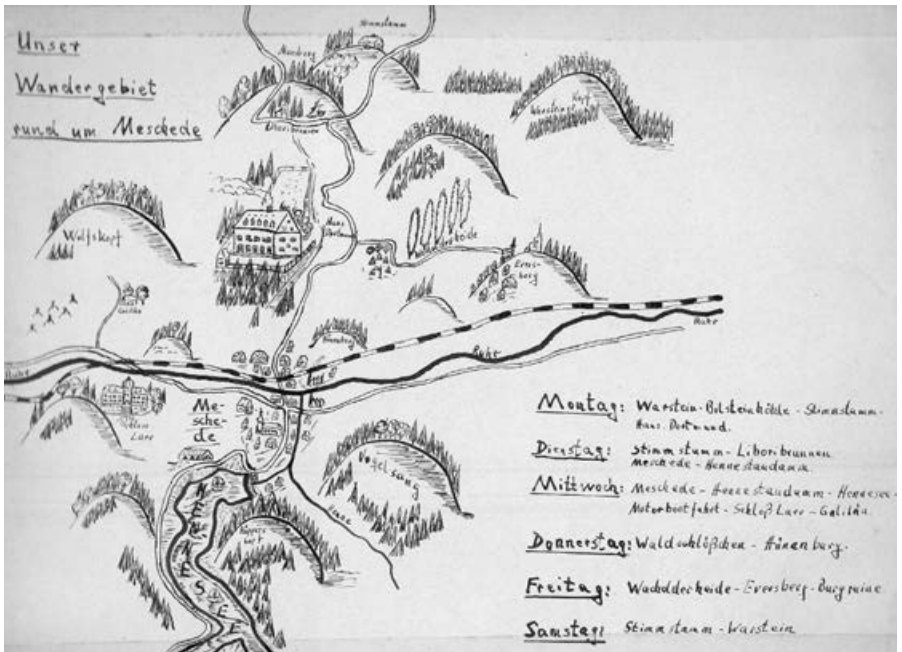 Unser
Wandergebiet
rund um Meschede
Stimmstamm
Warsteiner Kopf
Wolfskopf
Haus
Evers-
berg
Ruhr
Ruhr
Ruhr
Haus
Laer
Me-
sche-
de
Vogelsang
HENNESE
Montag: Warstein-Bilsteinhöhle - Stimmstamm-
Haus Dortmund.
Dienstag: Stimmstamm - Liboribrunnen
Meschede - Hennestaudamm
Mittwoch: Meschede - Hennestaudamm - Hennesee -
Motorbootfahrt - Schloß Laer - Galiläa.
Donnerstag: Waldschlößchen - Hünenburg.
Freitag: Wacholderheide - Eversberg - Burgruine
Samstag: Stimmstamm - Warstein